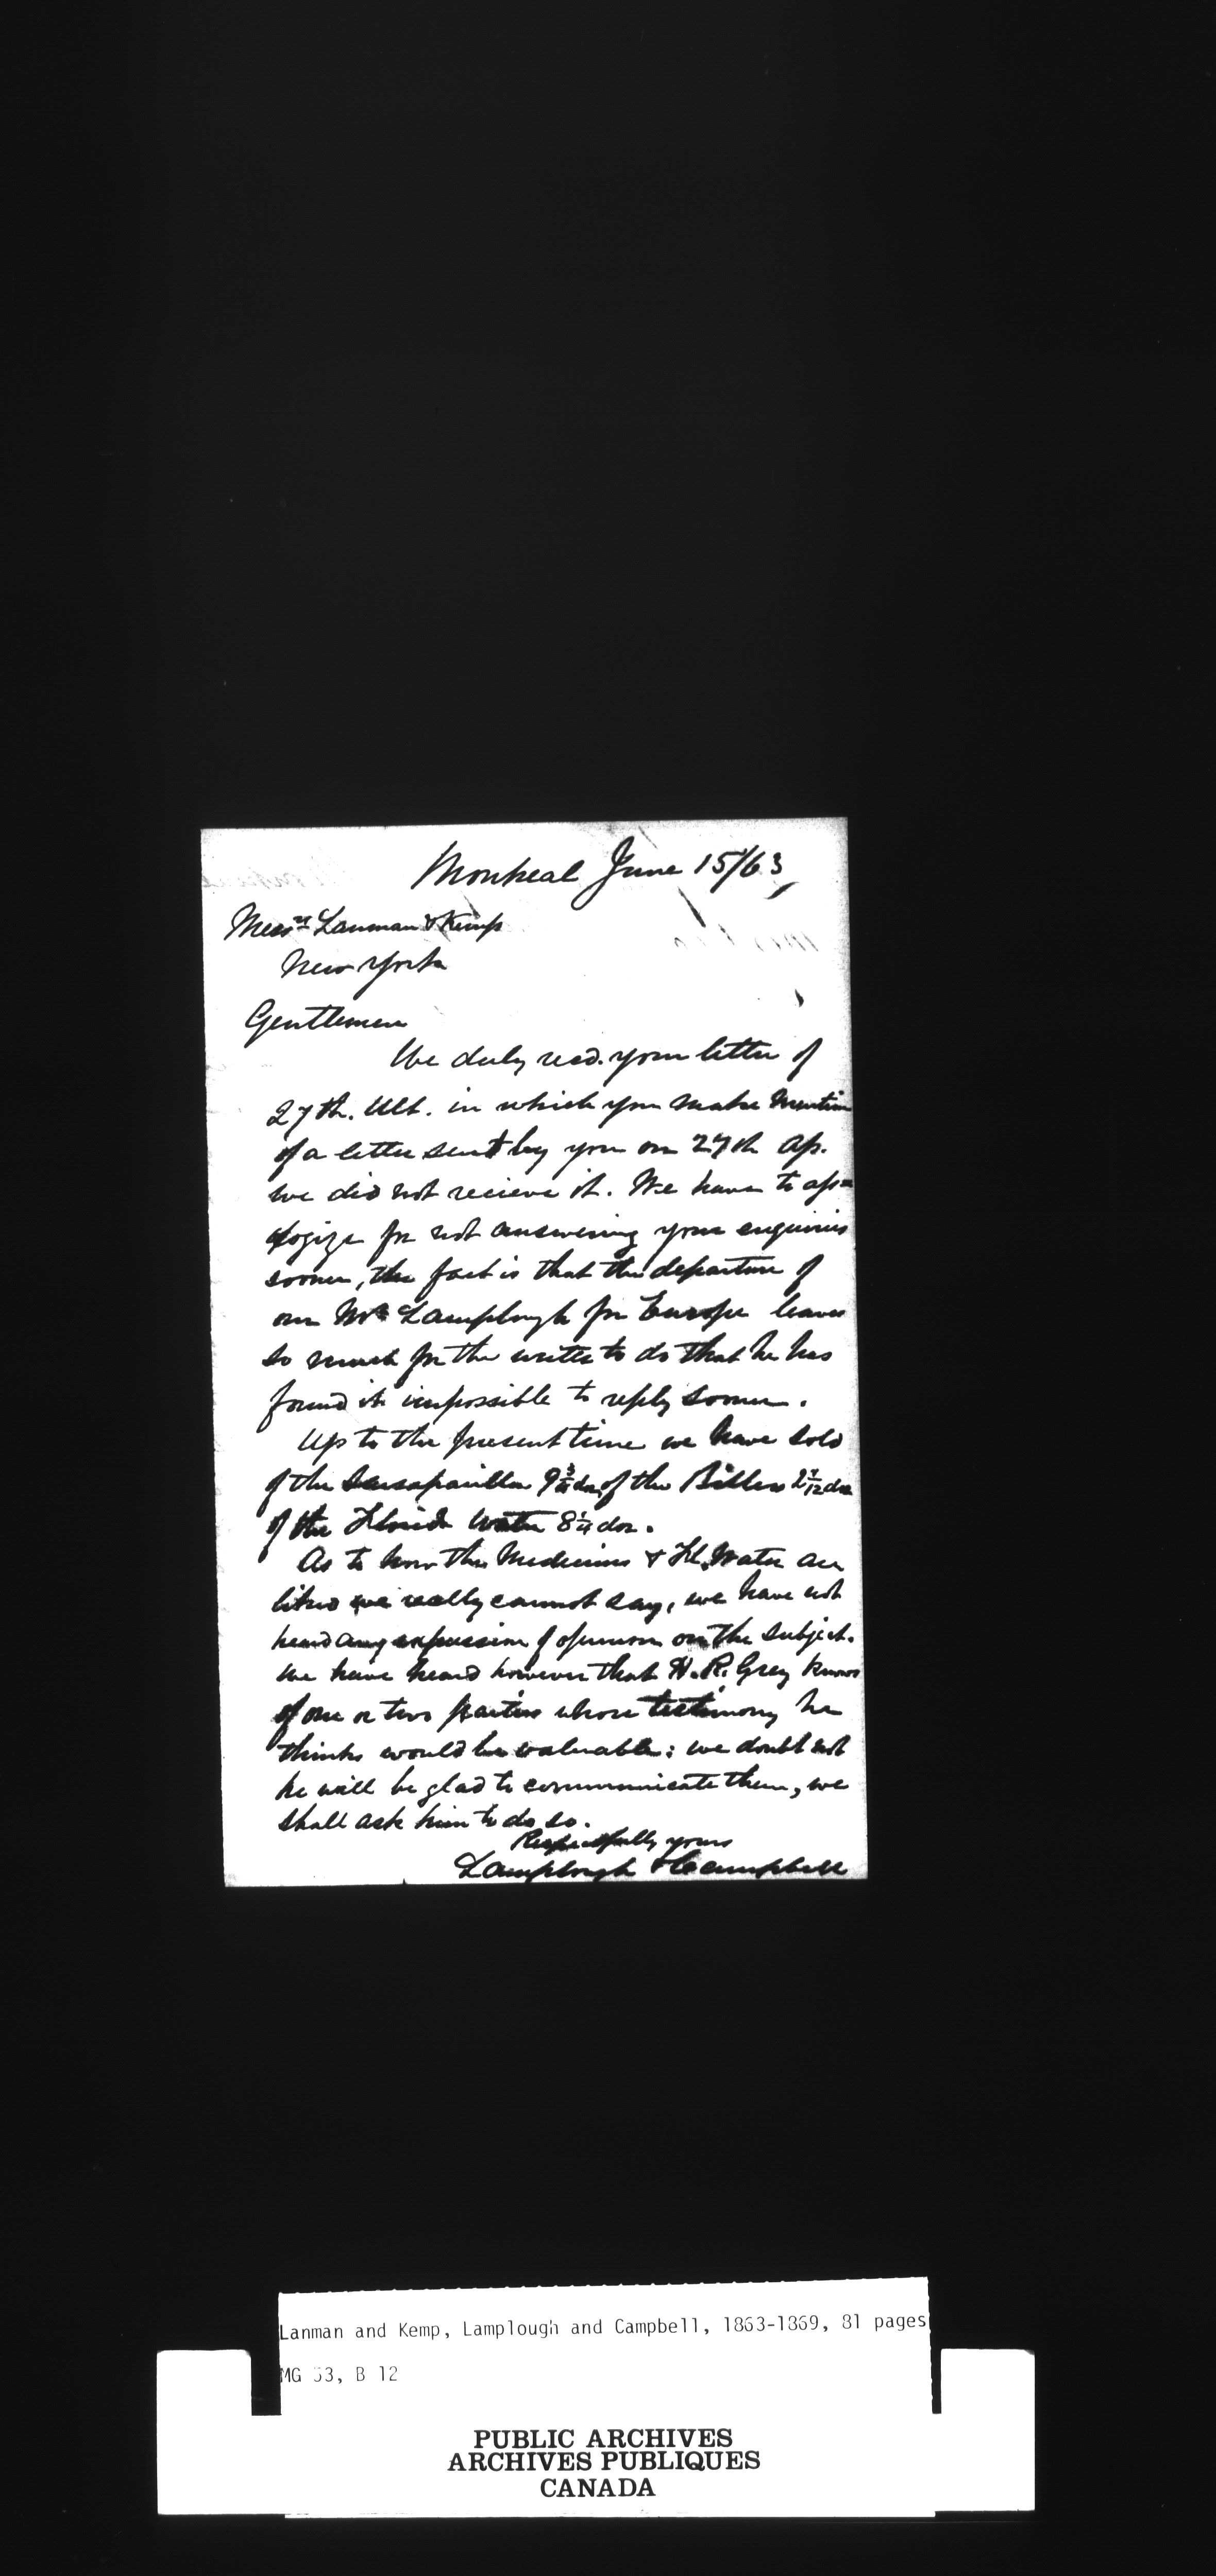 Montreal June 15/63
Messrs Lanman & Kemp
New York
Gentlemen
We duly recd. your letter of
27th. Ult. in which you make mention
of a letter sent by you on 27th Ap.
we did not recieve it. We have to apo=
logize for not answering your enquiries
sooner, the fact is that the departure of
our Mr Lamplough for Europe leaves
so much for the writer to do that he has
found it impossible to reply sooner.
Up to the present time we have sold
of the Sarsaparilla 9 3/4 doz of the Bitters 2 7/12 doz
of the Florida Water 8 1/4 doz.
As to how the Medicines & Fl. Water are
liked we really cannot say, we have not
heard any expression of opinion on the subject.
We have heard however that H. R. Gray knows
of one or two parties whose testimony he
thinks would be valuable; we doubt not
he will be glad to communicate them, we
shall ask him to do so.
Respectfully yours
Lamplough & Campbell
Lanman and Kemp, Lamplough and Campbell, 1863-1869, 81 pages
MG 53, B 12
PUBLIC ARCHIVES
ARCHIVES PUBLIQUES
CANADA